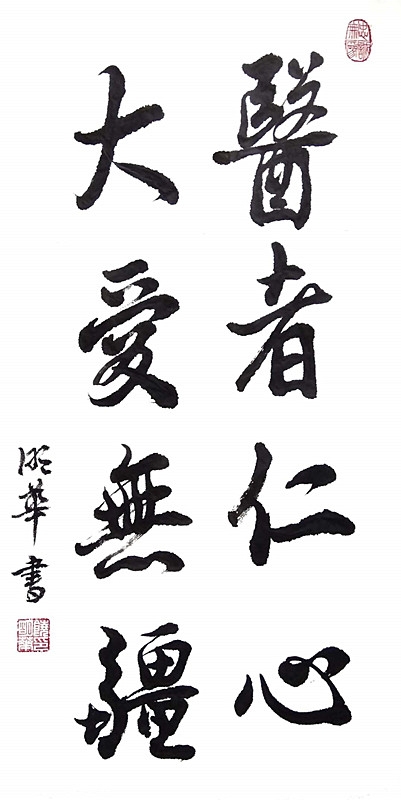 醫者仁心
大愛無疆
明華書